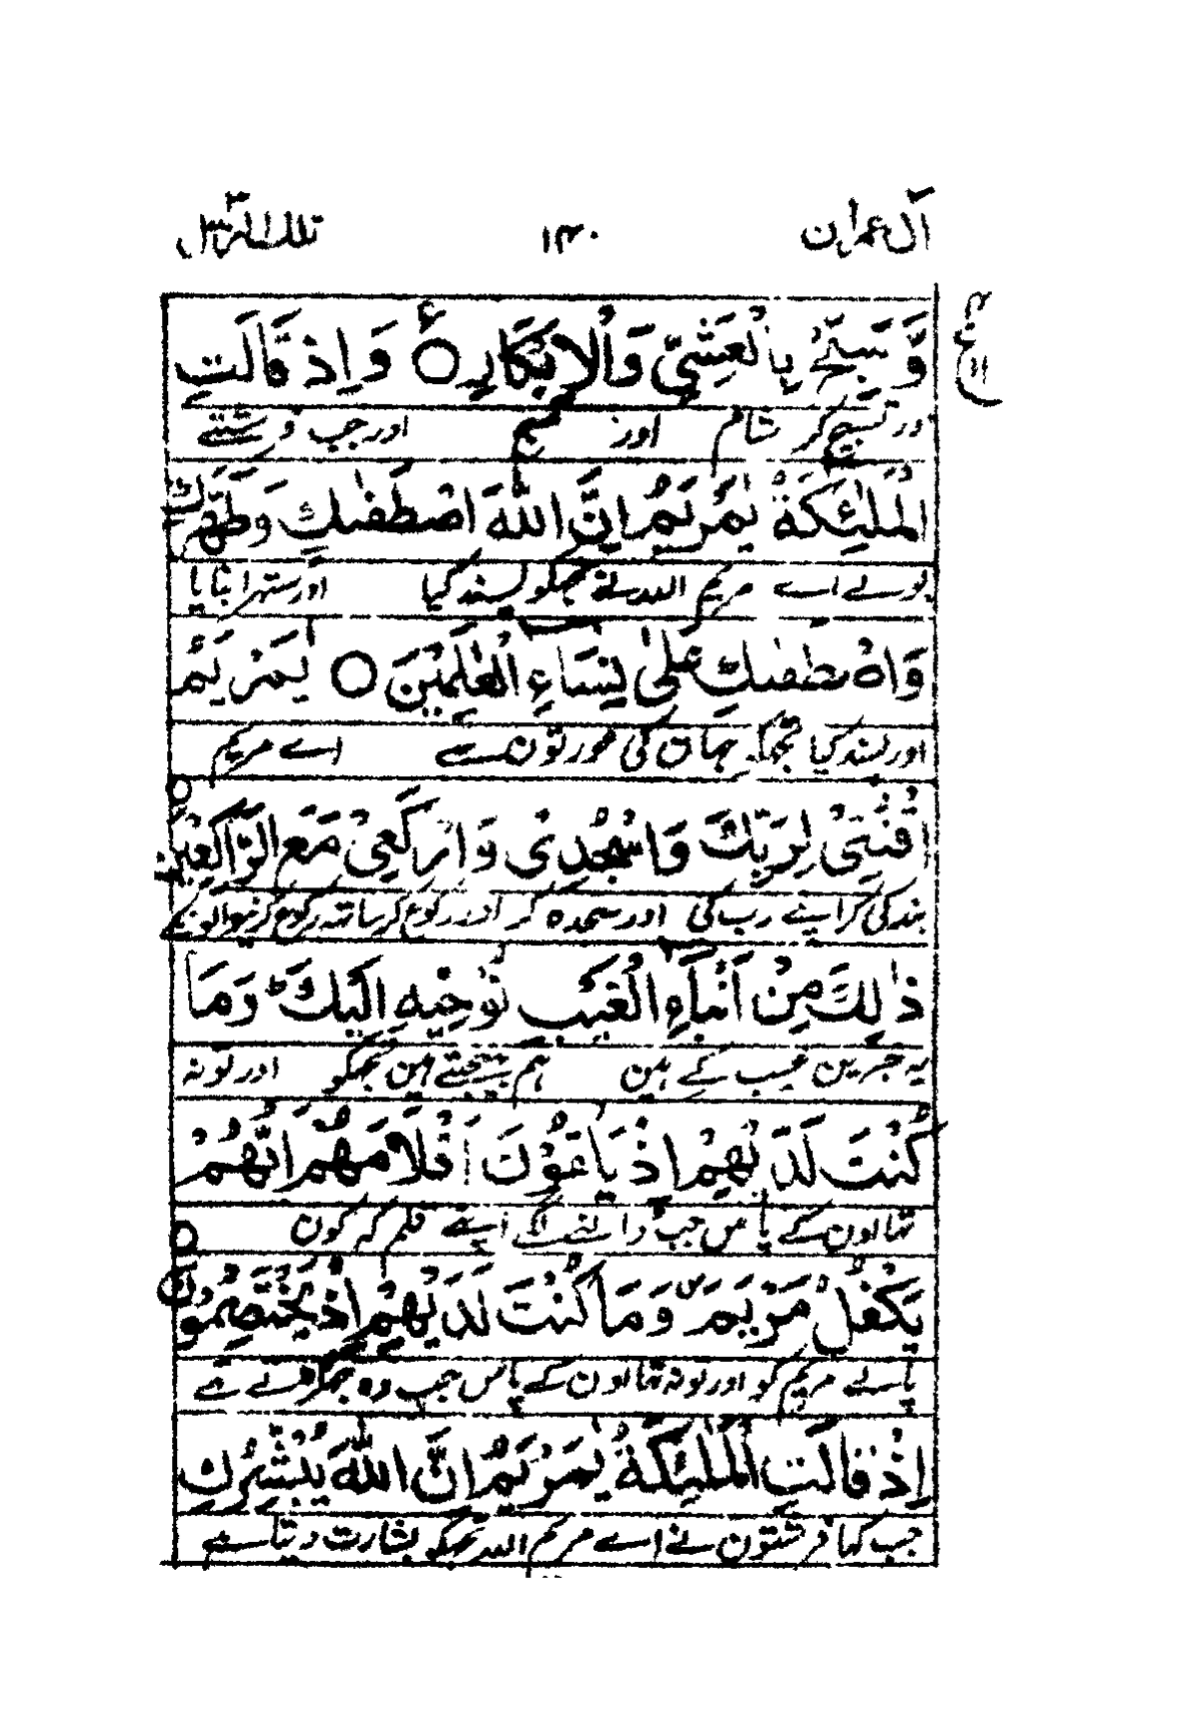 آل عمران ۱۴۰ تلك الرسل ۳
وَّسَبِّحْ بِالْعَشِيِّ وَالْاِبْكَارِ ○ وَاِذْ قَالَتِ
اور تسبیح کر شام اور صبح اور جب فرشتے
الْمَلٰٓئِكَةُ يٰمَرْيَمُ اِنَّ اللّٰهَ اصْطَفٰىكِ وَطَهَّرَكِ
بولے اے مریم اللہ نے تجھکو پسند کیا اور ستہرا بنایا
وَاصْطَفٰىكِ عَلٰى نِسَآءِ الْعٰلَمِيْنَ ○ يٰمَرْيَمُ
اور پسند کیا تجھکو جہان کی عورتون سے اے مریم
اقْنُتِيْ لِرَبِّكِ وَاسْجُدِيْ وَارْكَعِيْ مَعَ الرّٰكِعِيْنَ ○
بندگی کر اپنے رب کی اور سجدہ کر اور رکوع کر ساتھ رکوع کرنیوالونکے
ذٰلِكَ مِنْ اَنْۢبَآءِ الْغَيْبِ نُوْحِيْهِ اِلَيْكَ ؕ وَمَا
یہ خبرین غیب کے ہین ہم بھیجتے ہین تجھکو اور تو نہ
كُنْتَ لَدَيْهِمْ اِذْ يُلْقُوْنَ اَقْلَامَهُمْ اَيُّهُمْ
تھا اون کے پاس جب ڈالنے لگے اپنے قلم کہ کون
يَكْفُلُ مَرْيَمَ ۪ وَمَا كُنْتَ لَدَيْهِمْ اِذْ يَخْتَصِمُوْنَ ○
پالے مریم کو اور تو نہ تھا اون کے پاس جب وہ جھگڑتے تھے
اِذْ قَالَتِ الْمَلٰٓئِكَةُ يٰمَرْيَمُ اِنَّ اللّٰهَ يُبَشِّرُكِ
جب کہا فرشتون نے اے مریم اللہ تجھکو بشارت دیتا ہے